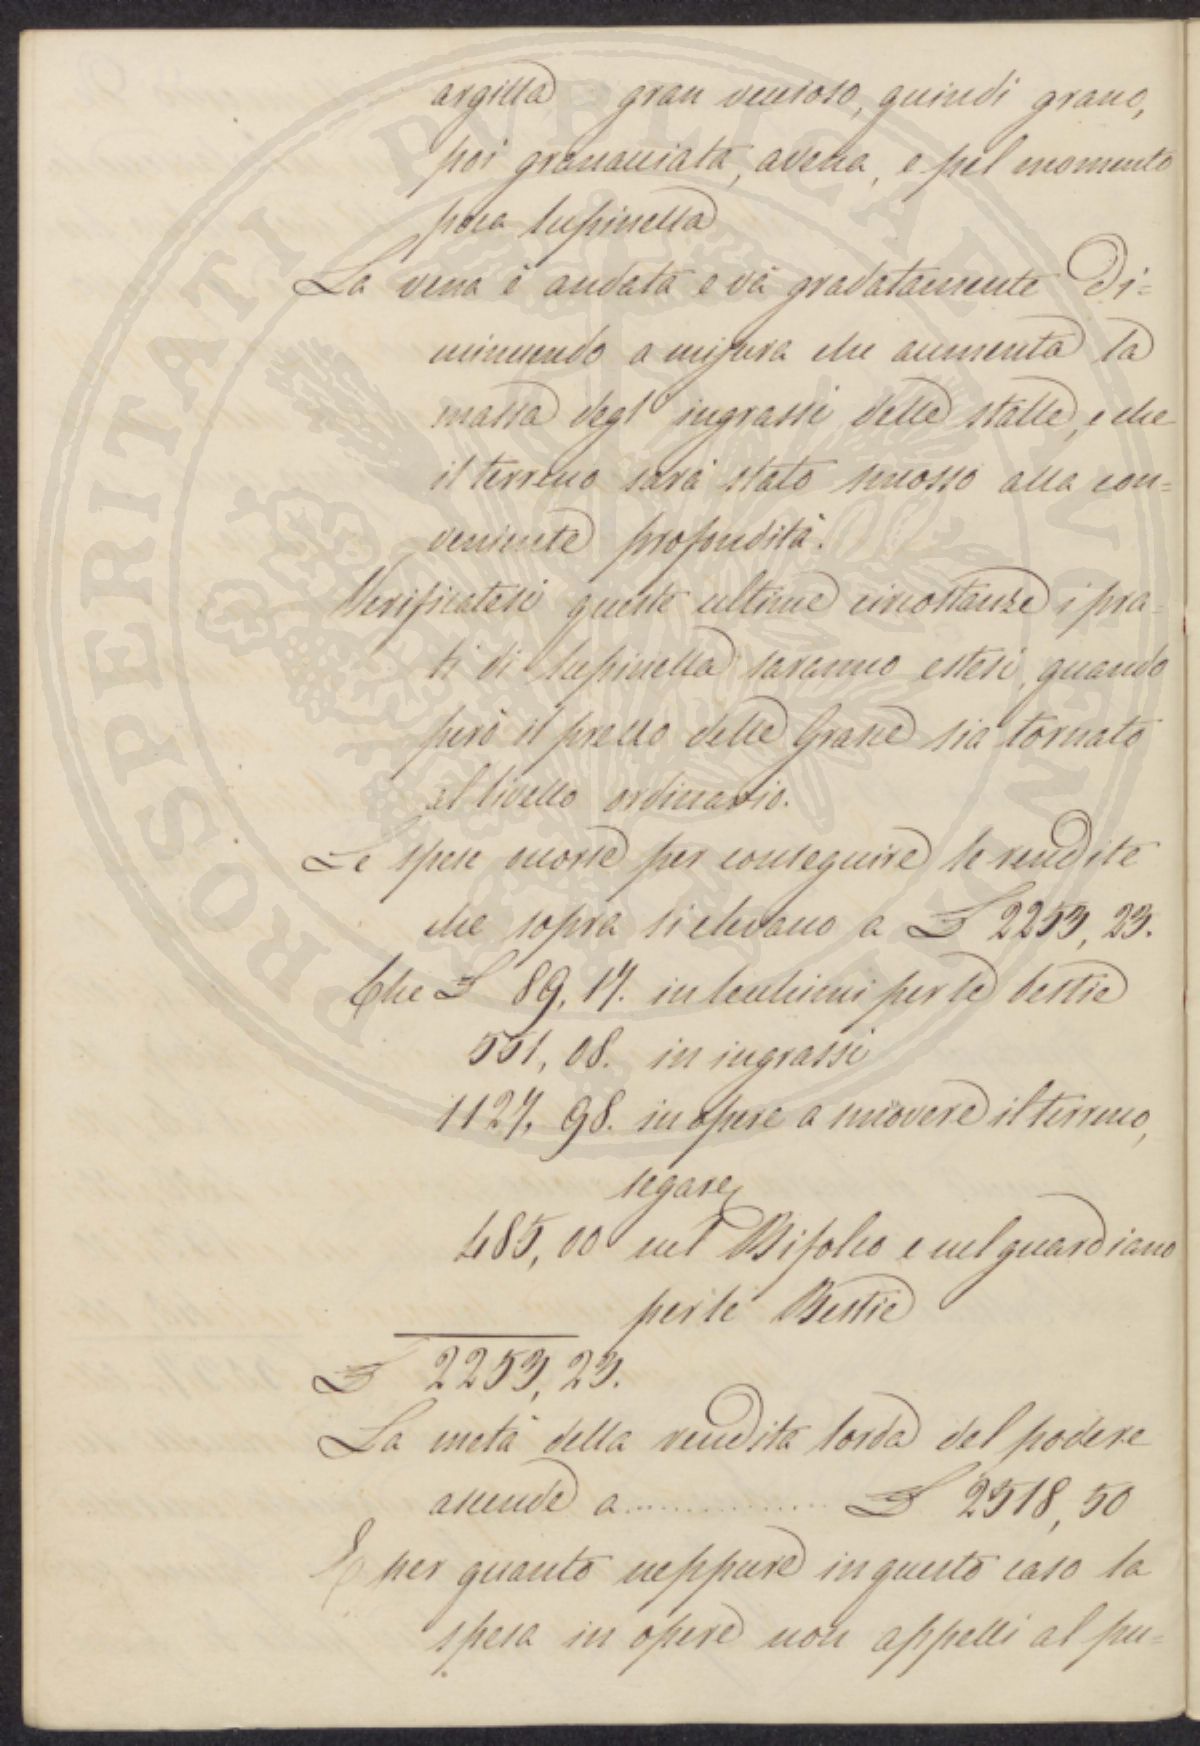 argilla gran vecioso, quindi grano,
poi granaciata, avena, e pel momento
poca lupinella
La vena è andata e và gradatamente di=
minuendo a misura che aumenta la
massa degl' ingrassi delle stalle, e che
il terreno sarà stato smosso alla con=
veniente profondità.
Verificatesi queste ultime circostanze i pra=
ti di lupinella saranno estesi, quando
però il prezzo delle Grasce sia tornato
al livello ordinario.
Le spese occorse per conseguire le rendite
che sopra si elevano a £ 2253, 23.
Che £ 89, 17. in lecchimi per le bestie
551, 08. in ingrassi
1127, 98. in opere a muovere il terreno,
segare,
485, 00 nel Bifolco e nel guardiano
per le Bestie
£ 2253, 23.
La metà della rendita lorda del podere
ascende a .............. £ 2518, 50
E per quanto neppure in questo caso la
spesa in opere non appelli al pu=
PROSPERITATI PUBLICAE AUGENDAE